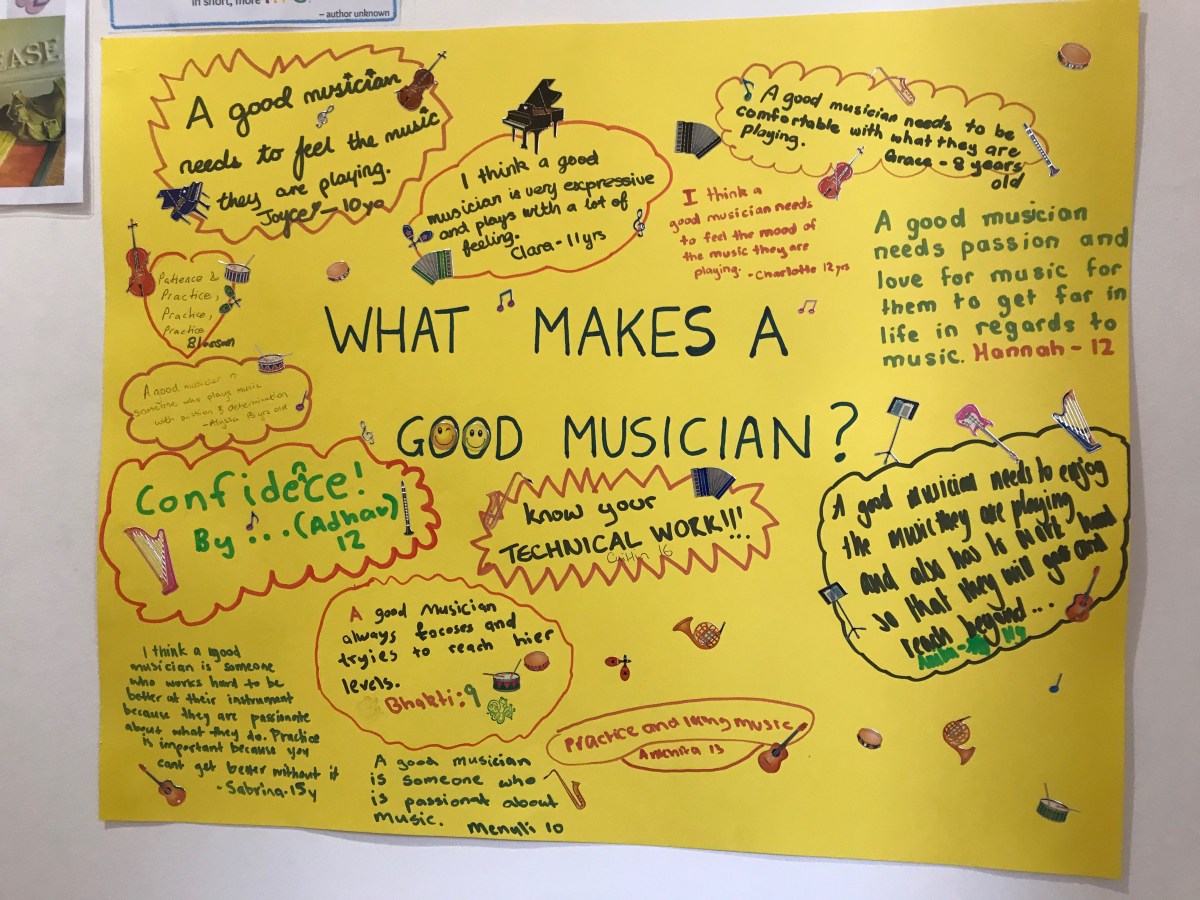 in short, more
– author unknown
EASE
A good musician
needs to feel the music
they are playing.
Joyce – 10yo
I think a good
musician is very expressive
and plays with a lot of
feeling.
Clara - 11yrs
A good musician needs to be
comfortable with what they are
playing.
Grace - 8 years
old
I think a
good musician needs
to feel the mood of
the music they are
playing. - Charlotte 12yrs
A good musician
needs passion and
love for music for
them to get far in
life in regards to
music. Hannah - 12
Patience &
Practice,
Practice,
Practice
WHAT MAKES A
GOOD MUSICIAN?
A good musician is
someone who plays music
with passion & determination
- Alyssa 13 yrs old
Confidence!
By ... (Adhav)
12
know your
TECHNICAL WORK!!!
Caitlyn 16
A good musician needs to enjoy
the music they are playing
and also has to work hard
so that they will go and
reach beyond...
A good musician
always focoses and
tryies to reach hier
levels.
Bhakti: 9
I think a good
musician is someone
who works hard to be
better at their instrument
because they are passionate
about what they do. Practice
is important because you
cant get better without it
- Sabrina. 15y
Practice and liking music
13
A good musician
is someone who
is passionate about
music. Menuli 10